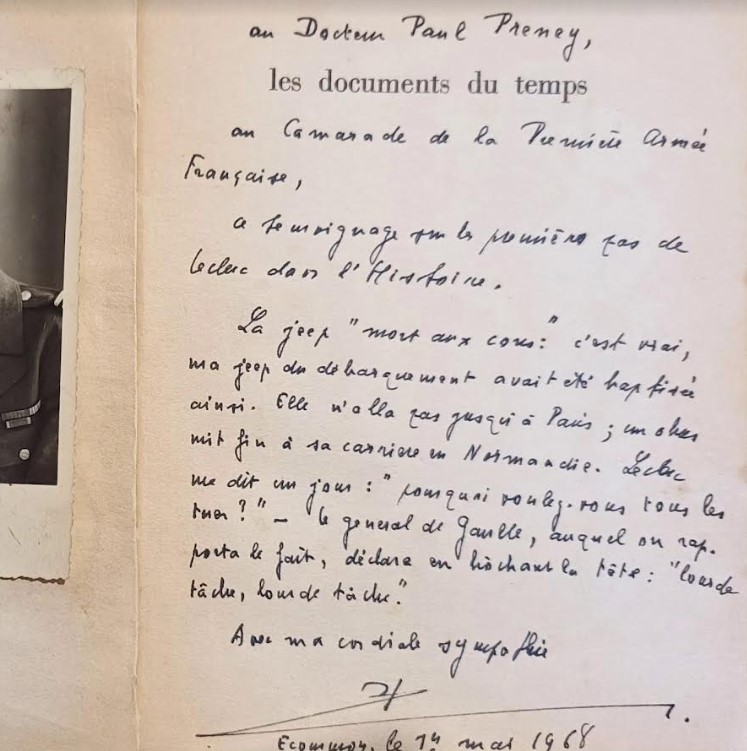 au Docteur Paul Preney,
les documents du temps
au Camarade de la Première Armée
Française,
ce témoignage sur les premiers pas de
Leclerc dans l'Histoire.
La jeep "mort aux cons:" c'est vrai,
ma jeep du débarquement avait été baptisée
ainsi. Elle n'alla pas jusqu'à Paris ; un obus
mit fin à sa carrière en Normandie. Leclerc
me dit un jour : "pourquoi voulez-vous tous les
tuer ?" – le général de Gaulle, auquel on rap-
porta le fait, déclara en hochant la tête : "lourde
tâche, lourde tâche."
Avec ma cordiale sympathie
Ecommoy, le 14 mai 1968